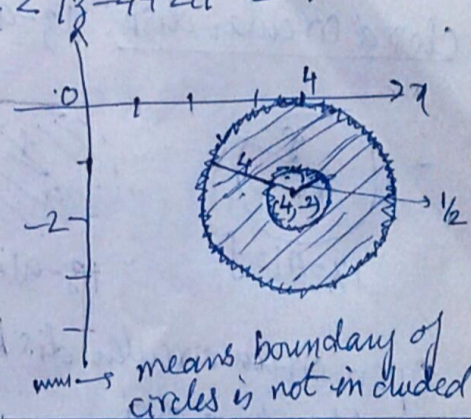 < |z-4+2i|
0
4
x
4
(4,-2)
1/2
-2
means boundary of
circles is not included